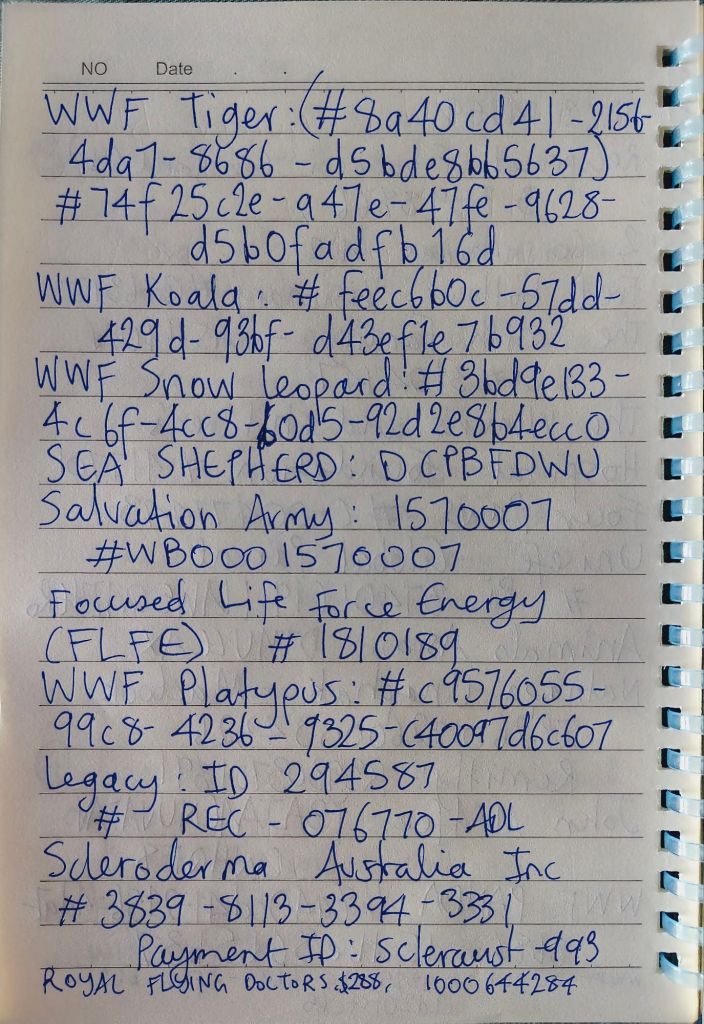 NO Date . .
WWF Tiger: (#8a40cd41-2156-
4da7-8686-d5bde8bb5637)
#74f25c2e-a47e-47fe-9628-
d5b0fadfb16d
WWF Koala: #feec6b0c-57dd-
429d-93bf-d43ef1e7b932
WWF Snow leopard: #3bd9e133-
4c6f-4cc8-b0d5-92d2e8b4ecc0
SEA SHEPHERD: DCPBFDWU
Salvation Army: 1570007
#WB0001570007
Focused Life Force Energy
(FLFE) #1810189
WWF Platypus: #c9576055-
99c8-4236-9325-c40097d6c607
Legacy: ID 294587
# REC-076770-ADL
Scleroderma Australia Inc
#3839-8113-3394-3331
Payment ID: scleraust-993
ROYAL FLYING DOCTORS $288, 1000644284